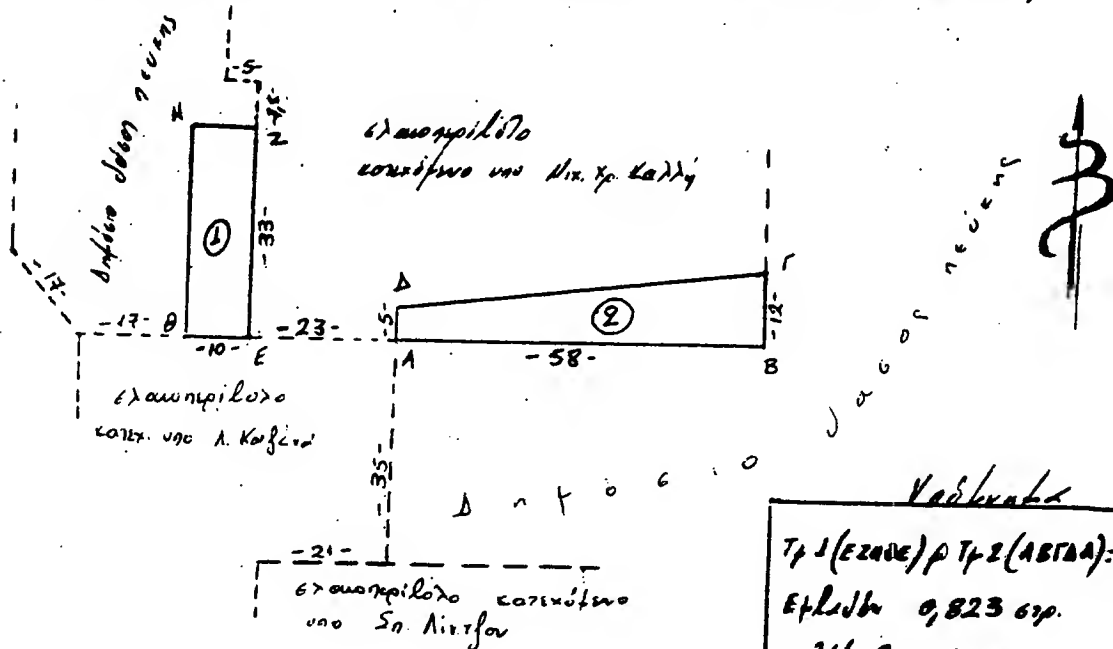 -5-
-7,5-
Δημόσιο δάσος πεύκης
Η
Ζ
ελαιοπερίβολο
κατεχόμενο υπό Νικ. Χρ. Καλλή
1
-33-
-17-
-17-
Θ
-10-
Ε
-23-
Δ
-5-
Α
2
-58-
Γ
-12-
Β
ελαιοπερίβολο
κατεχ. υπό Λ.
-35-
Δημόσιο δάσος πεύκης
-21-
ελαιοπερίβολο κατεχόμενο
υπό Σπ.
Υπόμνημα
Τμ 1 (ΕΖΗΘΕ) Τμ 2 (ΑΒΓΔΑ):
Εμβαδόν 0,823 στρ.